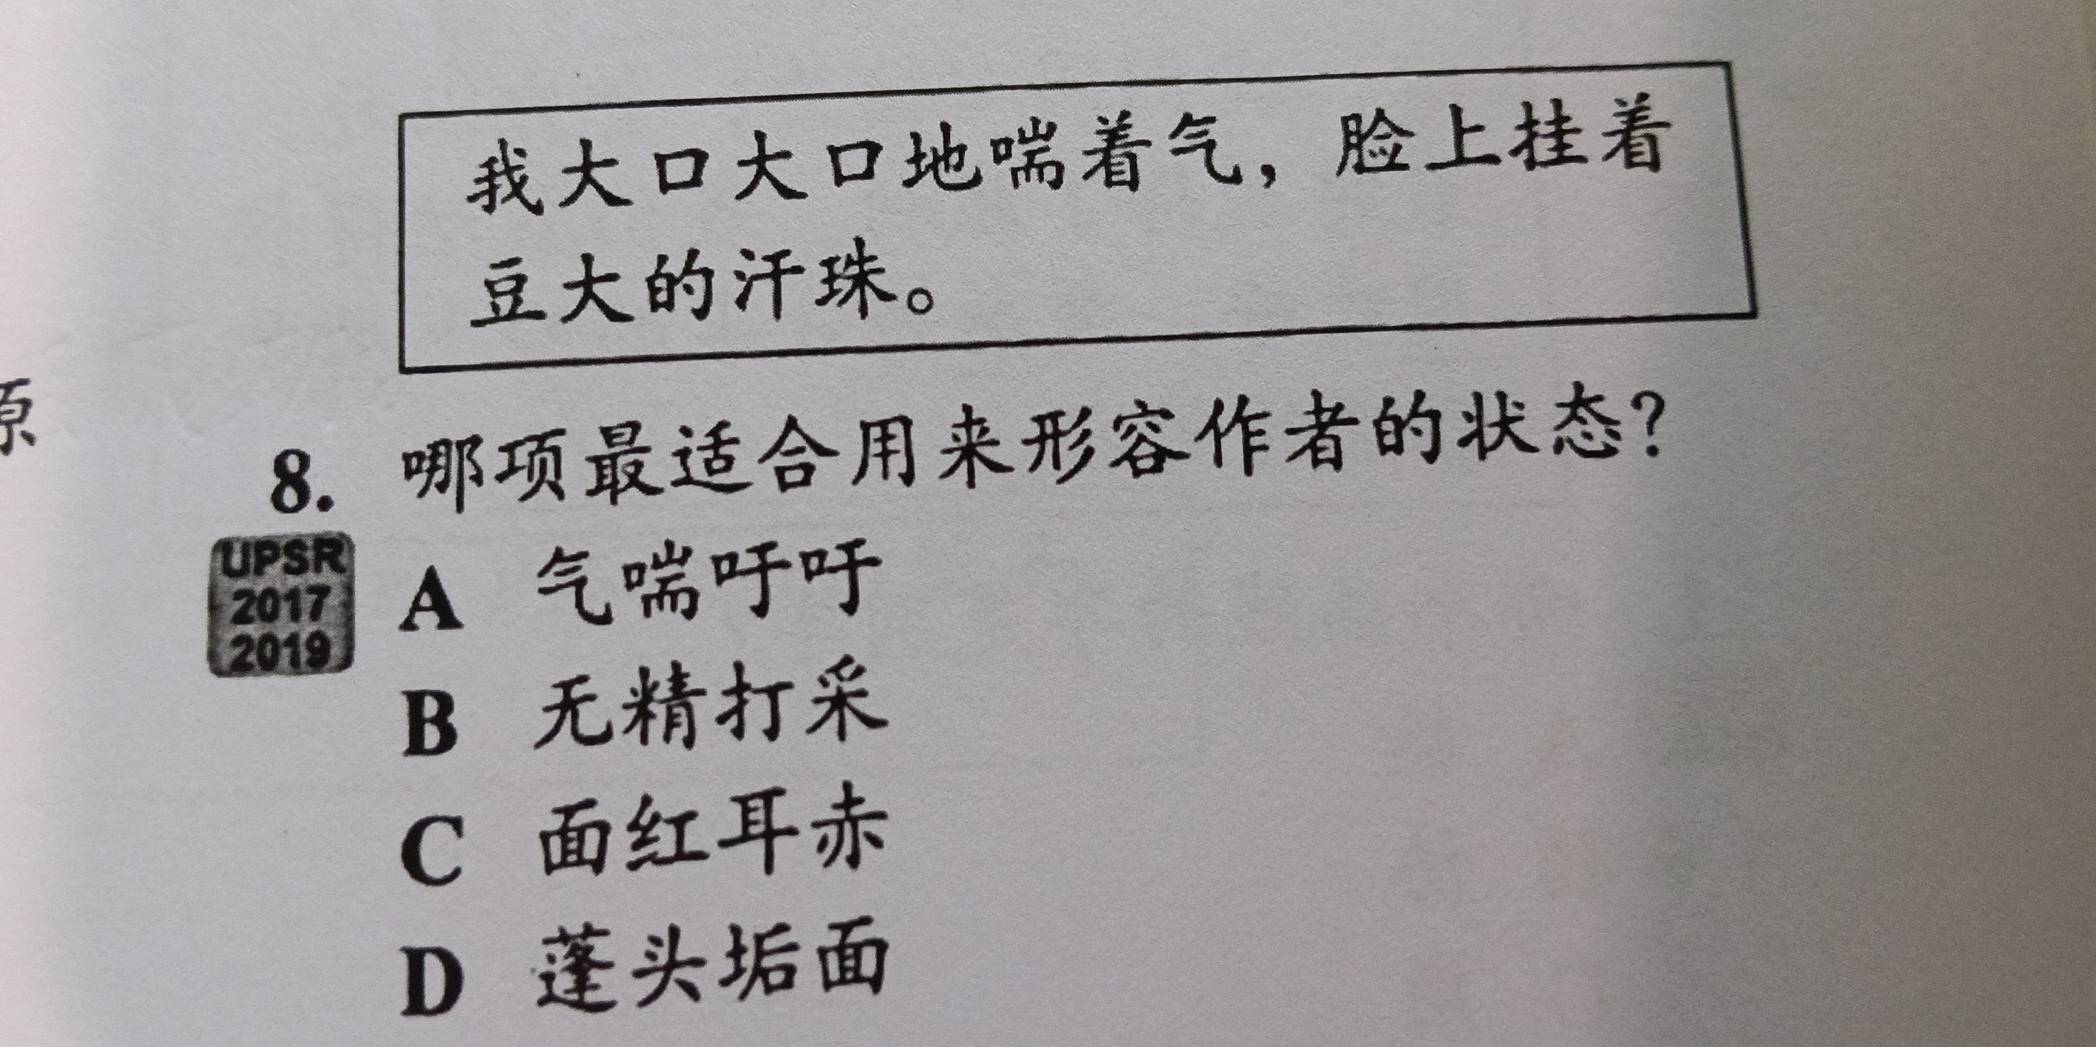 我大口大口地喘着气，脸上挂着
豆大的汗珠。
原
8. 哪项最适合用来形容作者的状态？
UPSR
2017
2019
A 气喘吁吁
B 无精打采
C 面红耳赤
D 蓬头垢面